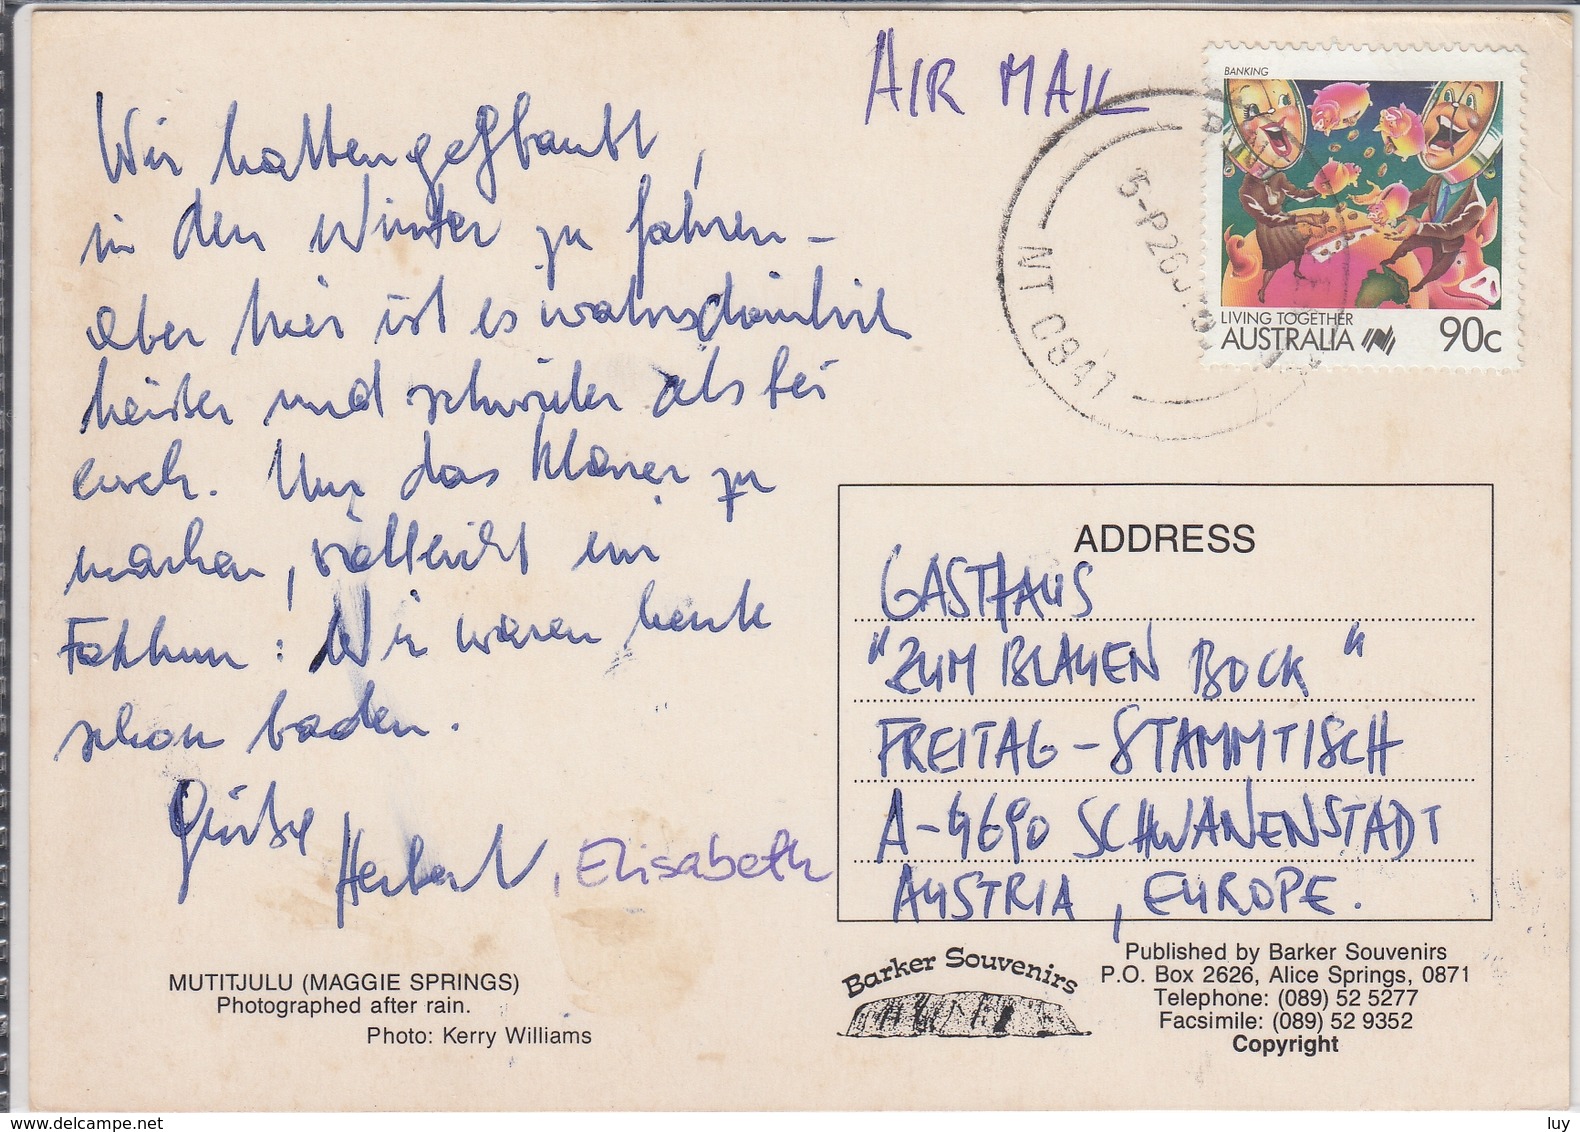 AIR MAIL
Wir hatten geglaubt,
in den Winter zu fahren –
aber hier ist es wahrscheinlich
heißer und schwüler als bei
euch. Nur das klarer zu
machen, vielleicht ein
Faktum: Wir waren heute
schon baden.
Grüße
Herbert, Elisabeth
MUTITJULU (MAGGIE SPRINGS)
Photographed after rain.
Photo: Kerry Williams
BANKING
LIVING TOGETHER
AUSTRALIA 90c
5-P 26
NT 0841
ADDRESS
GASTHAUS
"ZUM BLAUEN BOCK"
FREITAG - STAMMTISCH
A-4690 SCHWANENSTADT
AUSTRIA, EUROPE.
Barker Souvenirs
Published by Barker Souvenirs
P.O. Box 2626, Alice Springs, 0871
Telephone: (089) 52 5277
Facsimile: (089) 52 9352
Copyright
www.delcampe.net
luy